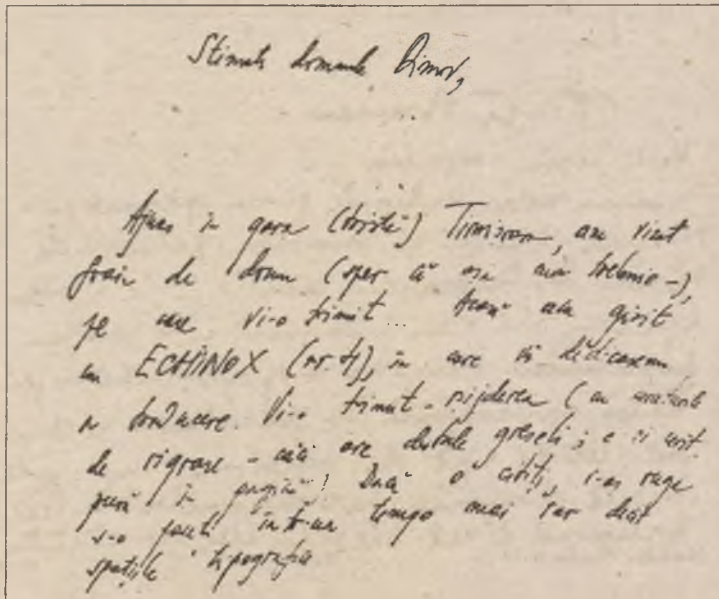 Stimate domnule Dimov,
Ajuns în gara (tristă) Timișoara, am
de drum (sper că nu
pe care vi-o trimit... Acasă am găsit
un ECHINOX (nr. 4), în care vă dedicasem
o traducere. Vi-o trimit
de rigoare - căci are destule greșeli; e și
pusă în pagină! Dacă o citiți, v-aș ruga
s-o faceți într-un tempo mai rar decât
spațiile tipografice